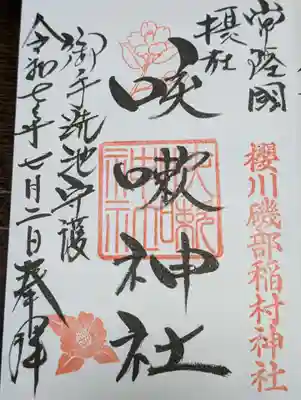 常陸國
櫻川磯部稲村神社
摂社
咳嗽神社
御手洗池守護
令和七年七月二日奉拝